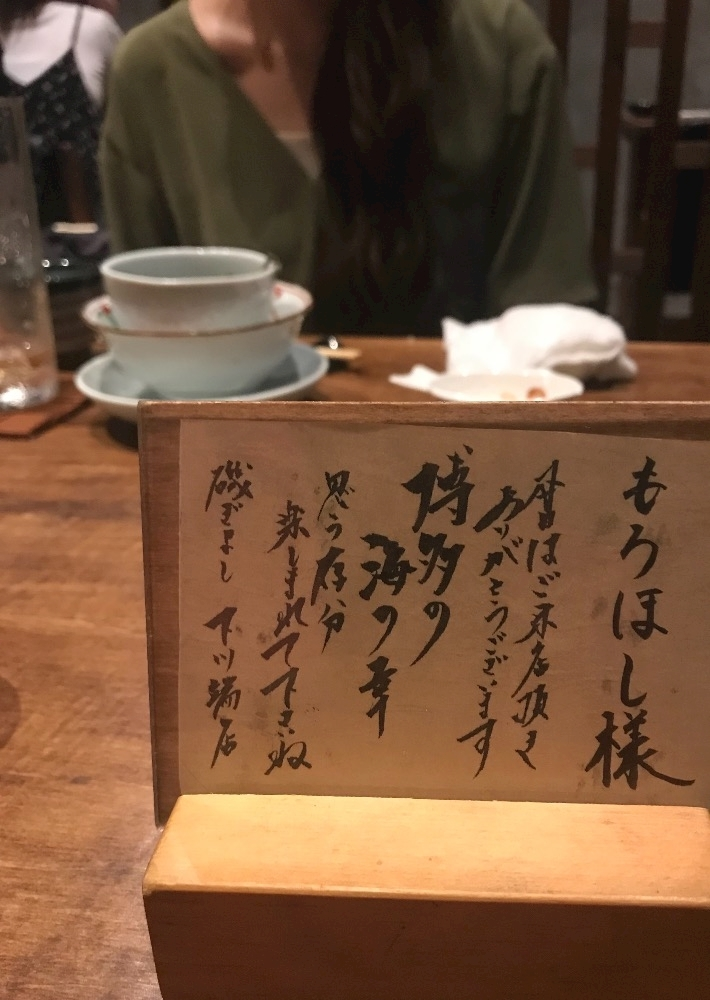 もろほし様
今宵はご来店頂き
ありがとうございます
博多の
海の幸
思う存分
楽しまれて下さいね
磯ぎよし 下川端店